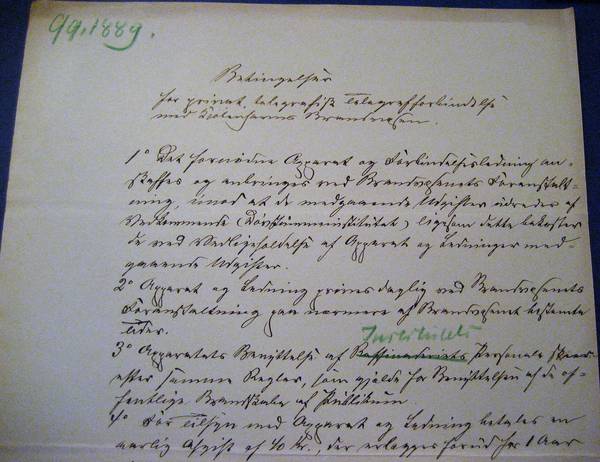 99.1889.
Betingelser
for privat telegrafisk Telegrafforbindelse
med Kjøbenhavns Brandvæsen.
1° Det fornødne Apparat og Forbindelsesledning an-
skaffes og anbringes ved Brandvæsenets Foranstalt-
ning, imod at de medgaaende Udgifter udredes af
Vedkommende (Døvstummeinstitutet) ligesom dette bekoster
de ved Vedligeholdelse af Apparat og Ledninger med-
gaaende Udgifter.
2° Apparat og Ledning prøves daglig ved Brandvæsenets
Foranstaltning paa nærmere af Brandvæsenet bestemte
Tider.
Institutets
3° Apparatets Benyttelse af Raffinaderiets Personale skeer
efter samme Regler, som gjælde for Benyttelsen af de of-
fentlige Brandskabe af Publikum.
4° For Tilsyn med Apparat og Ledning betales en
aarlig Afgift af 40 Kr., der erlægges forud for 1 Aar